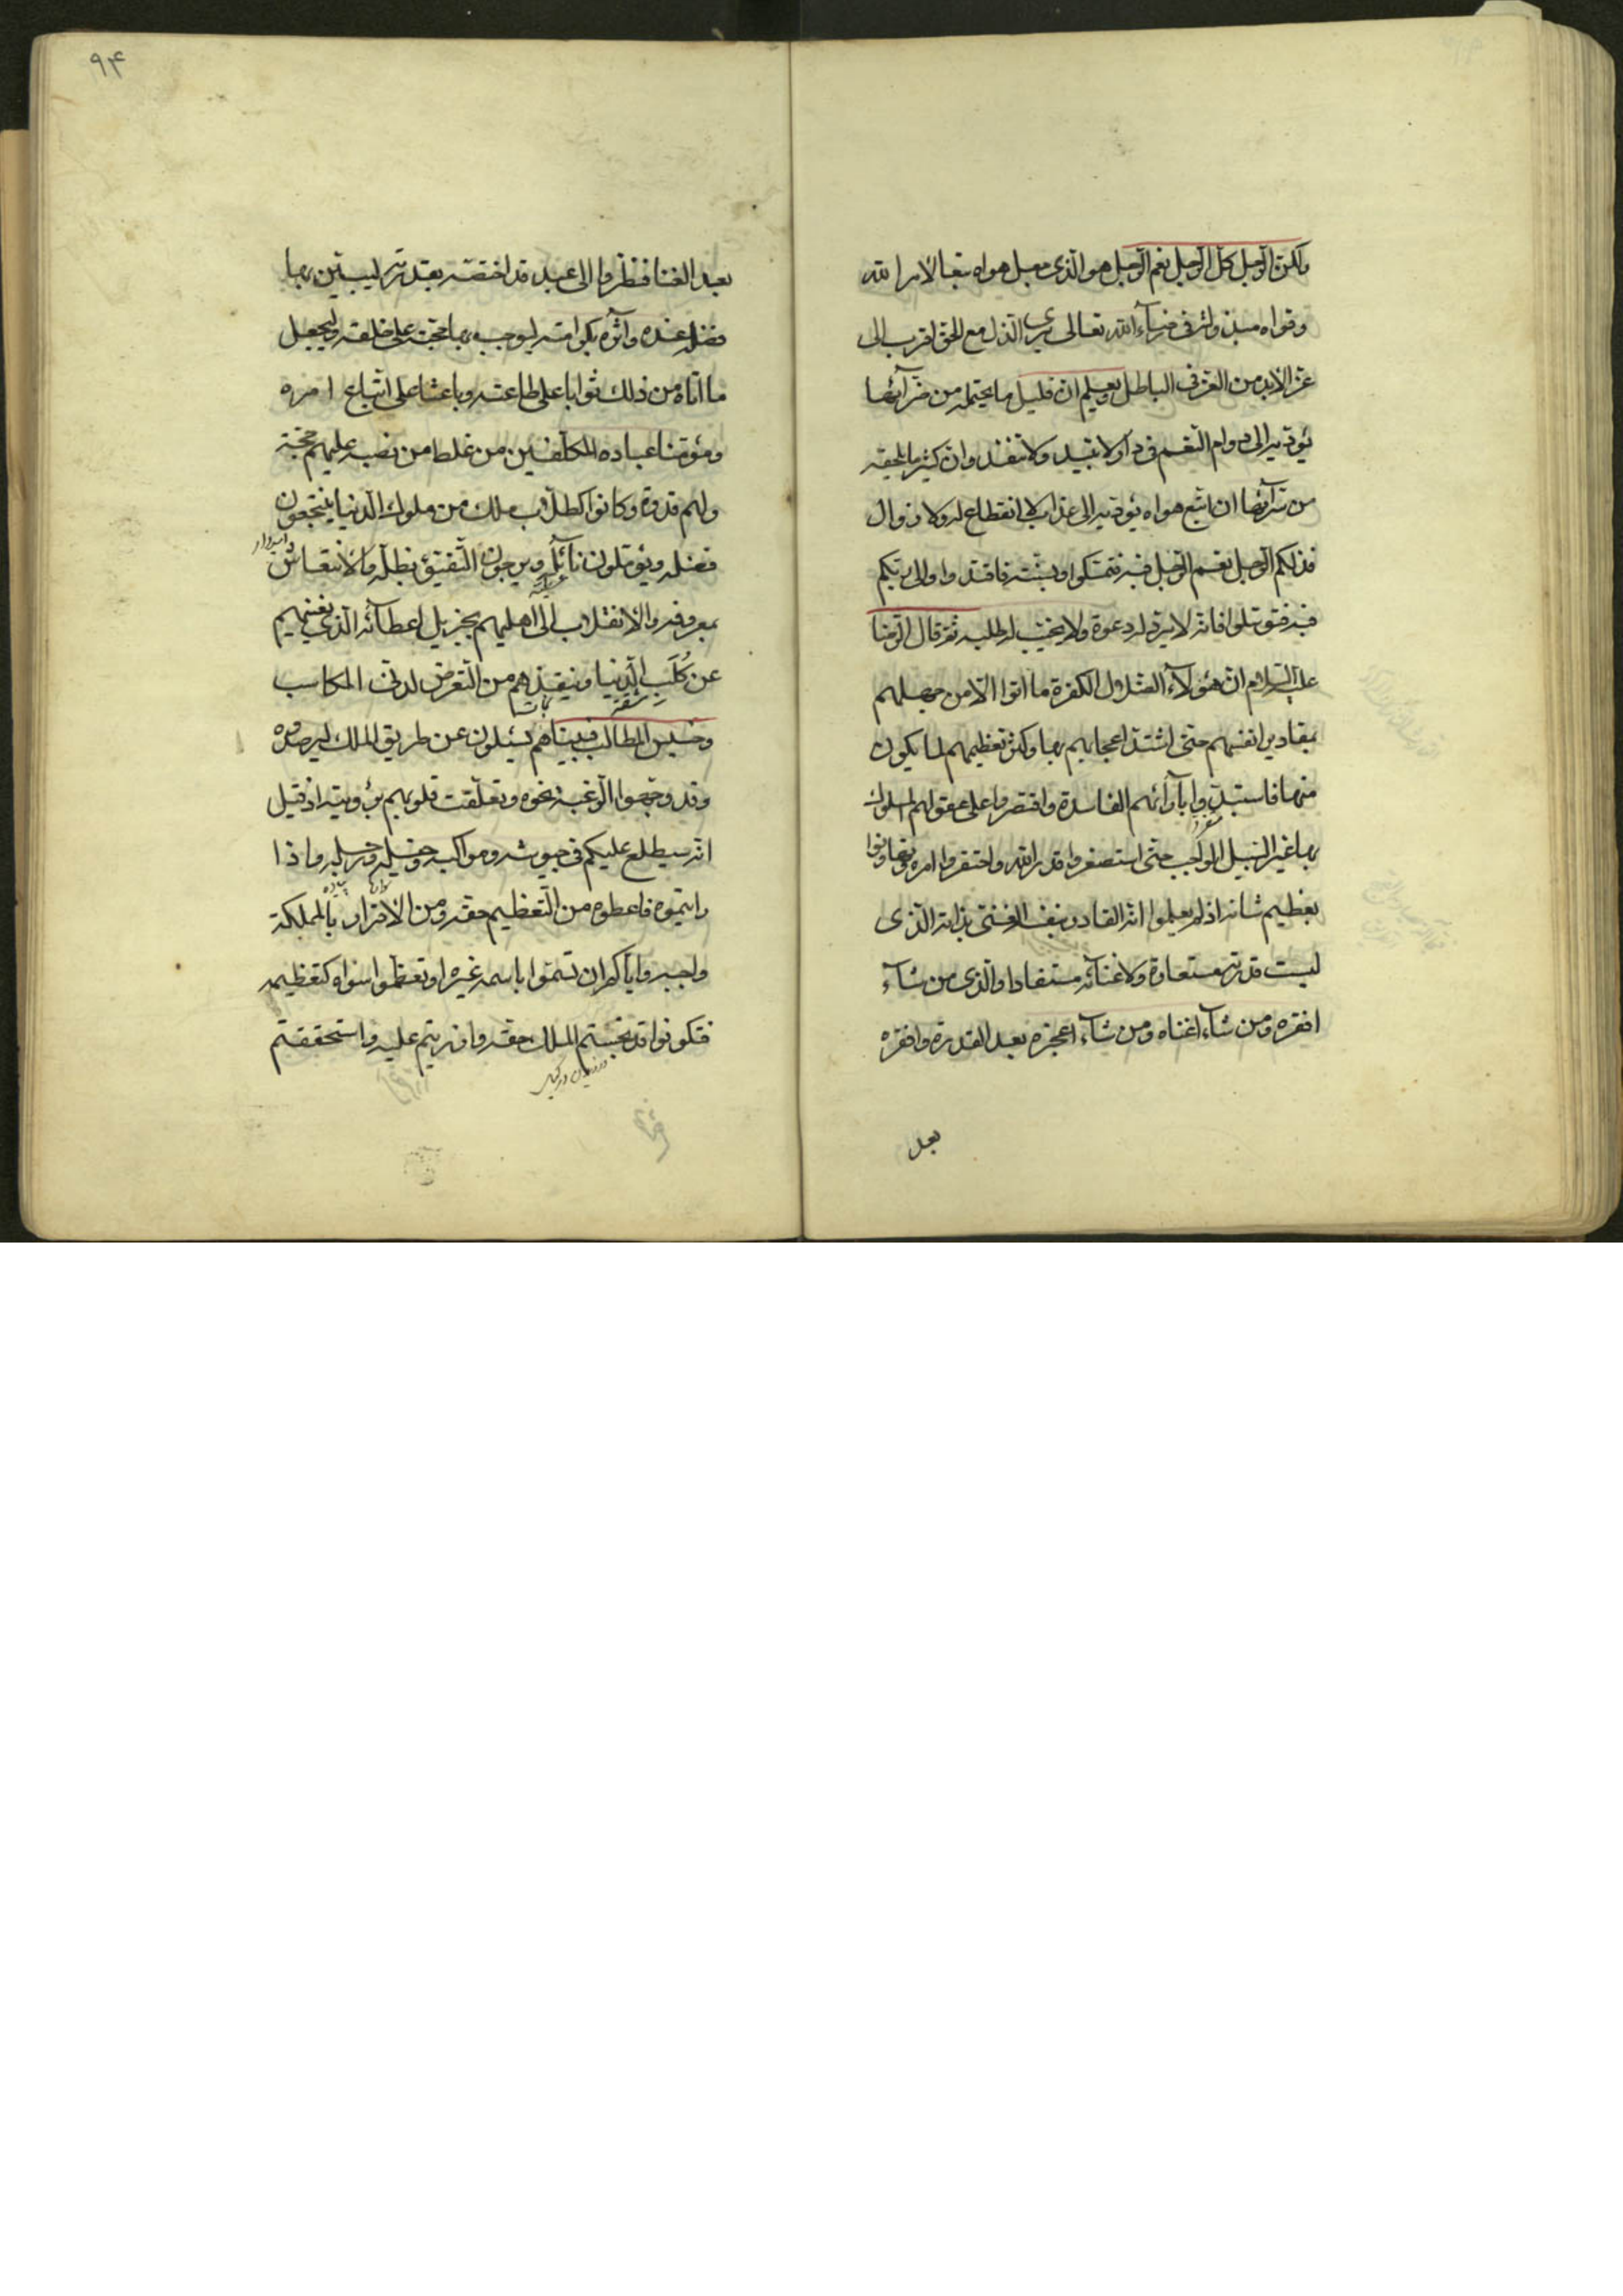 ولكن الرجل كل الرجل نعم الرجل هو الذى جعل هواه تبعا لامر الله
وقواه مبذولة فى رضاء الله تعالى يرى الذل مع الحق اقرب الى
عز الابد من العز فى الباطل ويعلم ان قليل ما يحتمله من ضرآئها
يؤديه الى دوام النعم فى دار لا تبيد ولا تنفد وان كثير ما يلحقه
من سرآئها ان اتبع هواه يؤديه الى عذاب لا انقطاع له ولا زوال
فذلكم الرجل نعم الرجل فبه فتمسكوا وبسنته فاقتدوا والى ربكم
فبه فتوسلوا فانه لا يرد له دعوة ولا يخيب له طلبه ثم قال الرضا
عليه السلام ان هؤلآء الضلال الكفرة ما اتوا الا من جهلهم
بمقادير انفسهم حتى اشتد اعجابهم بها وكثر تعظيمهم لما يكون
منها فاستبدوا بآرآئهم الفاسدة واقتصروا على عقولهم المسلوك
بها غير السبيل الواجب حتى استصغروا قدر الله واحتقروا امره وتهاونوا
بعظيم شانه اذ لم يعلموا انه القادر بنفسه الغنى بذاته الذى
ليست قدرته مستعارة ولا غنآئه مستفادا والذى من شآء
افقره ومن شآء اغناه ومن شآء اعجزه بعد القدرة وافقره
بعد
٩۴
بعد الغنا فنظروا الى عبد قد اختصه بقدرته ليبين بها
فضله عنده وآثره بكرامته ليوجب بها حجته على خلقه وليجعل
ما اتاه من ذلك ثوابا على طاعته وباعثا على اتباع امره
ومؤمنا عباده المكلفين من غلط من نصبه عليهم حجة
ولهم قدوة وكانوا كطلاب ملك من ملوك الدنيا ينتجعون
فضله ويؤملون نآئله ويرجون التفيؤ بظله والانتعاش
بمعروفه والانقلاب الى اهليهم بجزيل اعطآئه الذى يغنيهم
عن كلب الدنيا وينقذهم من التعرض لدنى المكاسب
وخسيس المطالب فبيناهم يسئلون عن طريق الملك ليرصدوه
وقد وجهوا الرغبة نحوه وتعلقت قلوبهم برؤيته اذ قيل
انه سيطلع عليكم فى جيوشه ومواكبه وخيله ورجله فاذا
رايتموه فاعطوه من التعظيم حقه ومن الاقرار بالمملكة
واجبه واياكم ان تسموا باسمه غيره او تعظموا سواه كتعظيمه
فتكونوا قد بخستم الملك حقه وازريتم عليه واستحققتم